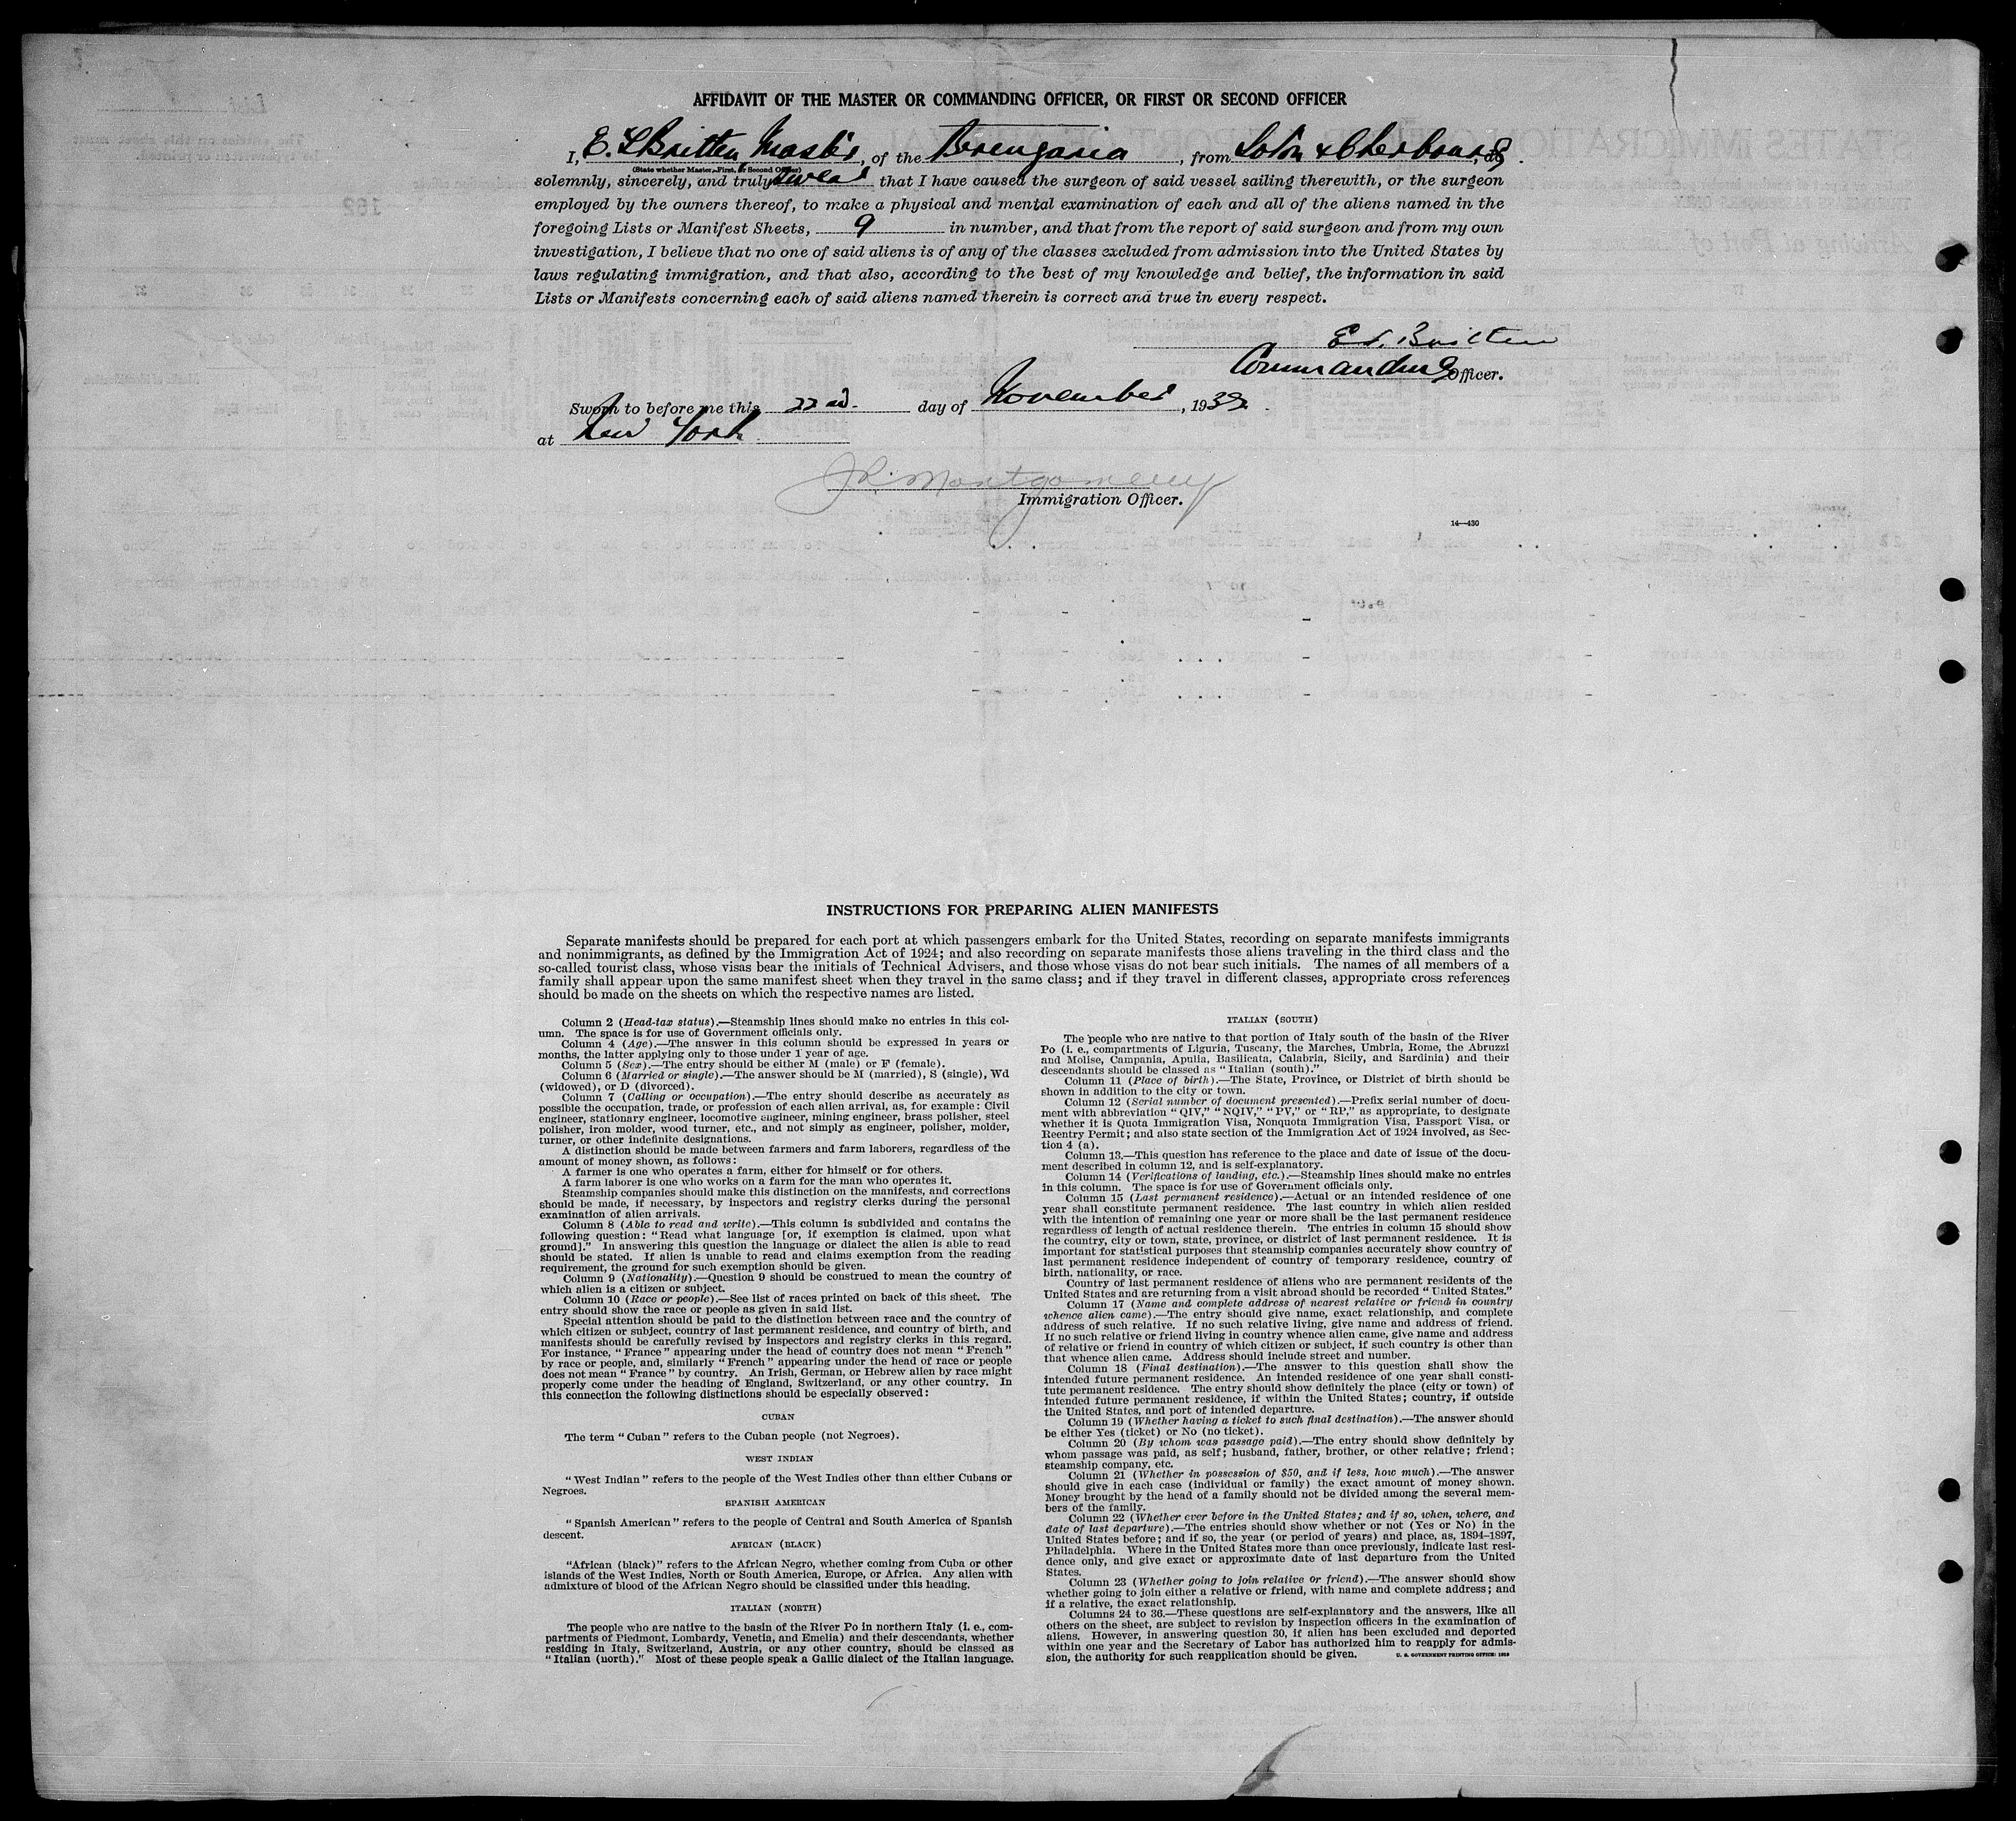 AFFIDAVIT OF THE MASTER OR COMMANDING OFFICER, OR FIRST OR SECOND OFFICER
I, E. Britten, Master, of the Berengaria, from Soton & Cherbourg, do
(State whether Master, First, or Second Officer)
solemnly, sincerely, and truly swear that I have caused the surgeon of said vessel sailing therewith, or the surgeon
employed by the owners thereof, to make a physical and mental examination of each and all of the aliens named in the
foregoing Lists or Manifest Sheets, 9 in number, and that from the report of said surgeon and from my own
investigation, I believe that no one of said aliens is of any of the classes excluded from admission into the United States by
laws regulating immigration, and that also, according to the best of my knowledge and belief, the information in said
Lists or Manifests concerning each of said aliens named therein is correct and true in every respect.
Britten
Commanding Officer.
Sworn to before me this 22nd day of November, 193
at New York
Montgomery
Immigration Officer.
14—430
INSTRUCTIONS FOR PREPARING ALIEN MANIFESTS
Separate manifests should be prepared for each port at which passengers embark for the United States, recording on separate manifests immigrants
and nonimmigrants, as defined by the Immigration Act of 1924; and also recording on separate manifests those aliens traveling in the third class and the
so-called tourist class, whose visas bear the initials of Technical Advisers, and those whose visas do not bear such initials. The names of all members of a
family shall appear upon the same manifest sheet when they travel in the same class; and if they travel in different classes, appropriate cross references
should be made on the sheets on which the respective names are listed.
Column 2 (Head-tax status).—Steamship lines should make no entries in this col-
umn. The space is for use of Government officials only.
Column 4 (Age).—The answer in this column should be expressed in years or
months, the latter applying only to those under 1 year of age.
Column 5 (Sex).—The entry should be either M (male) or F (female).
Column 6 (Married or single).—The answer should be M (married), S (single), Wd
(widowed), or D (divorced).
Column 7 (Calling or occupation).—The entry should describe as accurately as
possible the occupation, trade, or profession of each alien arrival, as, for example: Civil
engineer, stationary engineer, locomotive engineer, mining engineer, brass polisher, steel
polisher, iron molder, wood turner, etc., and not simply as engineer, polisher, molder,
turner, or other indefinite designations.
A distinction should be made between farmers and farm laborers, regardless of the
amount of money shown, as follows:
A farmer is one who operates a farm, either for himself or for others.
A farm laborer is one who works on a farm for the man who operates it.
Steamship companies should make this distinction on the manifests, and corrections
should be made, if necessary, by inspectors and registry clerks during the personal
examination of alien arrivals.
Column 8 (Able to read and write).—This column is subdivided and contains the
following question: "Read what language [or, if exemption is claimed, upon what
ground]." In answering this question the language or dialect the alien is able to read
should be stated. If alien is unable to read and claims exemption from the reading
requirement, the ground for such exemption should be given.
Column 9 (Nationality).—Question 9 should be construed to mean the country of
which alien is a citizen or subject.
Column 10 (Race or people).—See list of races printed on back of this sheet. The
entry should show the race or people as given in said list.
Special attention should be paid to the distinction between race and the country of
which citizen or subject, country of last permanent residence, and country of birth, and
manifests should be carefully revised by inspectors and registry clerks in this regard.
For instance, "France" appearing under the head of country does not mean "French"
by race or people, and, similarly "French" appearing under the head of race or people
does not mean "France" by country. An Irish, German, or Hebrew alien by race might
properly come under the heading of England, Switzerland, or any other country. In
this connection the following distinctions should be especially observed:
CUBAN
The term "Cuban" refers to the Cuban people (not Negroes).
WEST INDIAN
"West Indian" refers to the people of the West Indies other than either Cubans or
Negroes.
SPANISH AMERICAN
"Spanish American" refers to the people of Central and South America of Spanish
descent.
AFRICAN (BLACK)
"African (black)" refers to the African Negro, whether coming from Cuba or other
islands of the West Indies, North or South America, Europe, or Africa. Any alien with
admixture of blood of the African Negro should be classified under this heading.
ITALIAN (NORTH)
The people who are native to the basin of the River Po in northern Italy (i. e., com-
partments of Piedmont, Lombardy, Venetia, and Emelia) and their descendants, whether
residing in Italy, Switzerland, Austria, or any other country, should be classed as
"Italian (north)." Most of these people speak a Gallic dialect of the Italian language.
ITALIAN (SOUTH)
The people who are native to that portion of Italy south of the basin of the River
Po (i. e., compartments of Liguria, Tuscany, the Marches, Umbria, Rome, the Abruzzi
and Molise, Campania, Apulia, Basilicata, Calabria, Sicily, and Sardinia) and their
descendants should be classed as "Italian (south)."
Column 11 (Place of birth).—The State, Province, or District of birth should be
shown in addition to the city or town.
Column 12 (Serial number of document presented).—Prefix serial number of docu-
ment with abbreviation "QIV," "NQIV," "PV," or "RP," as appropriate, to designate
whether it is Quota Immigration Visa, Nonquota Immigration Visa, Passport Visa, or
Reentry Permit; and also state section of the Immigration Act of 1924 involved, as Sec-
tion 4 (a).
Column 13.—This question has reference to the place and date of issue of the docu-
ment described in column 12, and is self-explanatory.
Column 14 (Verifications of landing, etc.).—Steamship lines should make no entries
in this column. The space is for use of Government officials only.
Column 15 (Last permanent residence).—Actual or an intended residence of one
year shall constitute permanent residence. The last country in which alien resided
with the intention of remaining one year or more shall be the last permanent residence
regardless of length of actual residence therein. The entries in column 15 should show
the country, city or town, state, province, or district of last permanent residence. It is
important for statistical purposes that steamship companies accurately show country of
last permanent residence independent of country of temporary residence, country of
birth, nationality, or race.
Country of last permanent residence of aliens who are permanent residents of the
United States and are returning from a visit abroad should be recorded "United States."
Column 17 (Name and complete address of nearest relative or friend in country
whence alien came).—The entry should give name, exact relationship, and complete
address of such relative. If no such relative living, give name and address of friend.
If no such relative or friend living in country whence alien came, give name and address
of relative or friend in country of which citizen or subject, if such country is other than
that whence alien came. Address should include street and number.
Column 18 (Final destination).—The answer to this question shall show the
intended future permanent residence. An intended residence of one year shall consti-
tute permanent residence. The entry should show definitely the place (city or town) of
intended future permanent residence, if within the United States; country, if outside
the United States, and port of intended departure.
Column 19 (Whether having a ticket to such final destination).—The answer should
be either Yes (ticket) or No (no ticket).
Column 20 (By whom was passage paid).—The entry should show definitely by
whom passage was paid, as self; husband, father, brother, or other relative; friend;
steamship company, etc.
Column 21 (Whether in possession of $50, and if less, how much).—The answer
should give in each case (individual or family) the exact amount of money shown.
Money brought by the head of a family should not be divided among the several mem-
bers of the family.
Column 22 (Whether ever before in the United States; and if so, when, where, and
date of last departure).—The entries should show whether or not (Yes or No) in the
United States before; and if so, the year (or period of years) and place, as, 1894–1897,
Philadelphia. Where in the United States more than once previously, indicate last resi-
dence only, and give exact or approximate date of last departure from the United
States.
Column 23 (Whether going to join relative or friend).—The answer should show
whether going to join either a relative or friend, with name and complete address; and
if a relative, the exact relationship.
Columns 24 to 36.—These questions are self-explanatory and the answers, like all
others on the sheet, are subject to revision by inspection officers in the examination of
aliens. However, in answering question 30, if alien has been excluded and deported
within one year and the Secretary of Labor has authorized him to reapply for admis-
sion, the authority for such reapplication should be given.
U. S. GOVERNMENT PRINTING OFFICE: